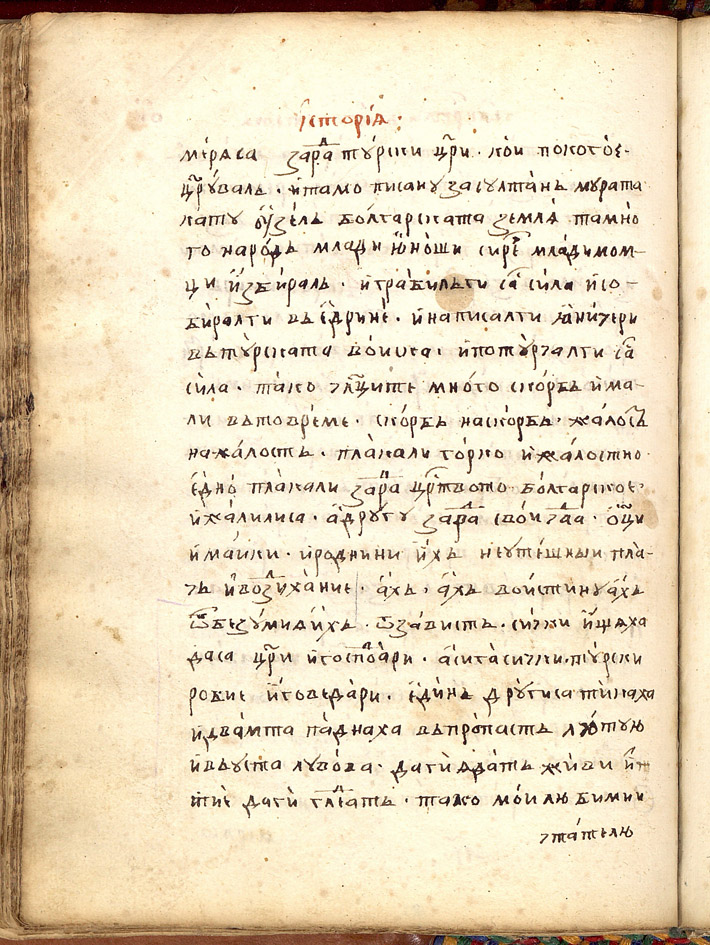 Історїѧ:
мѣряса зара́д тꙋ́рски цр҃и · ко́и покого́е ·
цр҃ꙋ́валь · и҆тамо писанꙋ засꙋлта́нь мура́та
кату ᲂу҆зе́ль болгарската землѧ̀ тамно
го наро́дь млади ю҆ноши сирѣ́ч мла́димом-
ци и҆збира́ль · и҆грабильги са́с сила и҆со-
бира́лги въ є҆дрине̂ · и҆написалги ꙗ҆ничери
вътꙋ́рската во́иска · и҆потꙋ́рчалги са́с
си́ла · тако чл҃ците мно́го ско́рбь и҆ма-
ли вътовре́ме · ско́рбь наско́рбь · жа́лость
нажа́лость · пла́кали го́рко и҆ жа́лостно
є҆дно̀ пла́кали зара́д цр҃тво­то болгарское ·
и҆жа́лилиса · а҆дрꙋгꙋ зара́д свои ча́да · о҆ц҃и
и҆ма́ики · и҆родни́ни и҆́хь неꙋтѣшныи пла-
чь и҆воз̾диха́ние · а҆́хь, а҆́хь воистинꙋ а҆́хь
ѿбезꙋ́миѧ и҆́хь · ѿза́висть · си́чки и҆́щѧха
даса цр҃и и҆господа́ри · а҆сига̀ си́чки тꙋ́рски
робие и҆говедари · є҆ди́нь дрꙋ́гиса ти́каха
и҆два́мта па́днаха въпро́пасть лю́тую
и҆въꙋста лувова · даги ꙗ҆да́ть живи и҆
тїе даги гле́дать · тако мо́и любимии
чта́телю